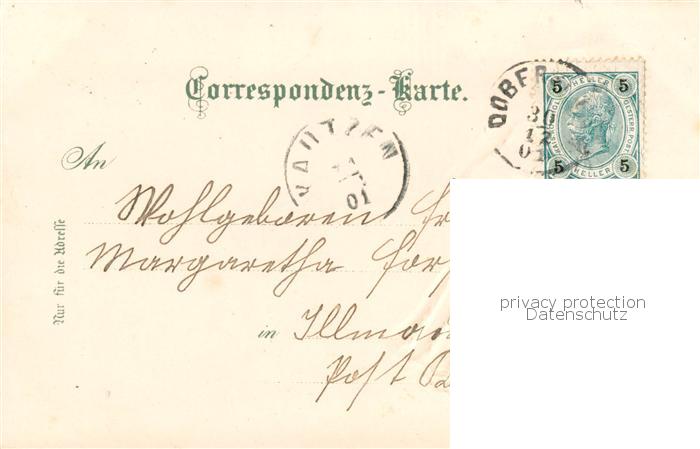 Correspondenz-Karte.
DOBER
5 HELLER 5
5 HELLER 5
JAUTZEN
01
An
Wohlgeboren Fr
Margaretha
in Illma
Post
Nur für die Adresse
privacy protection
Datenschutz